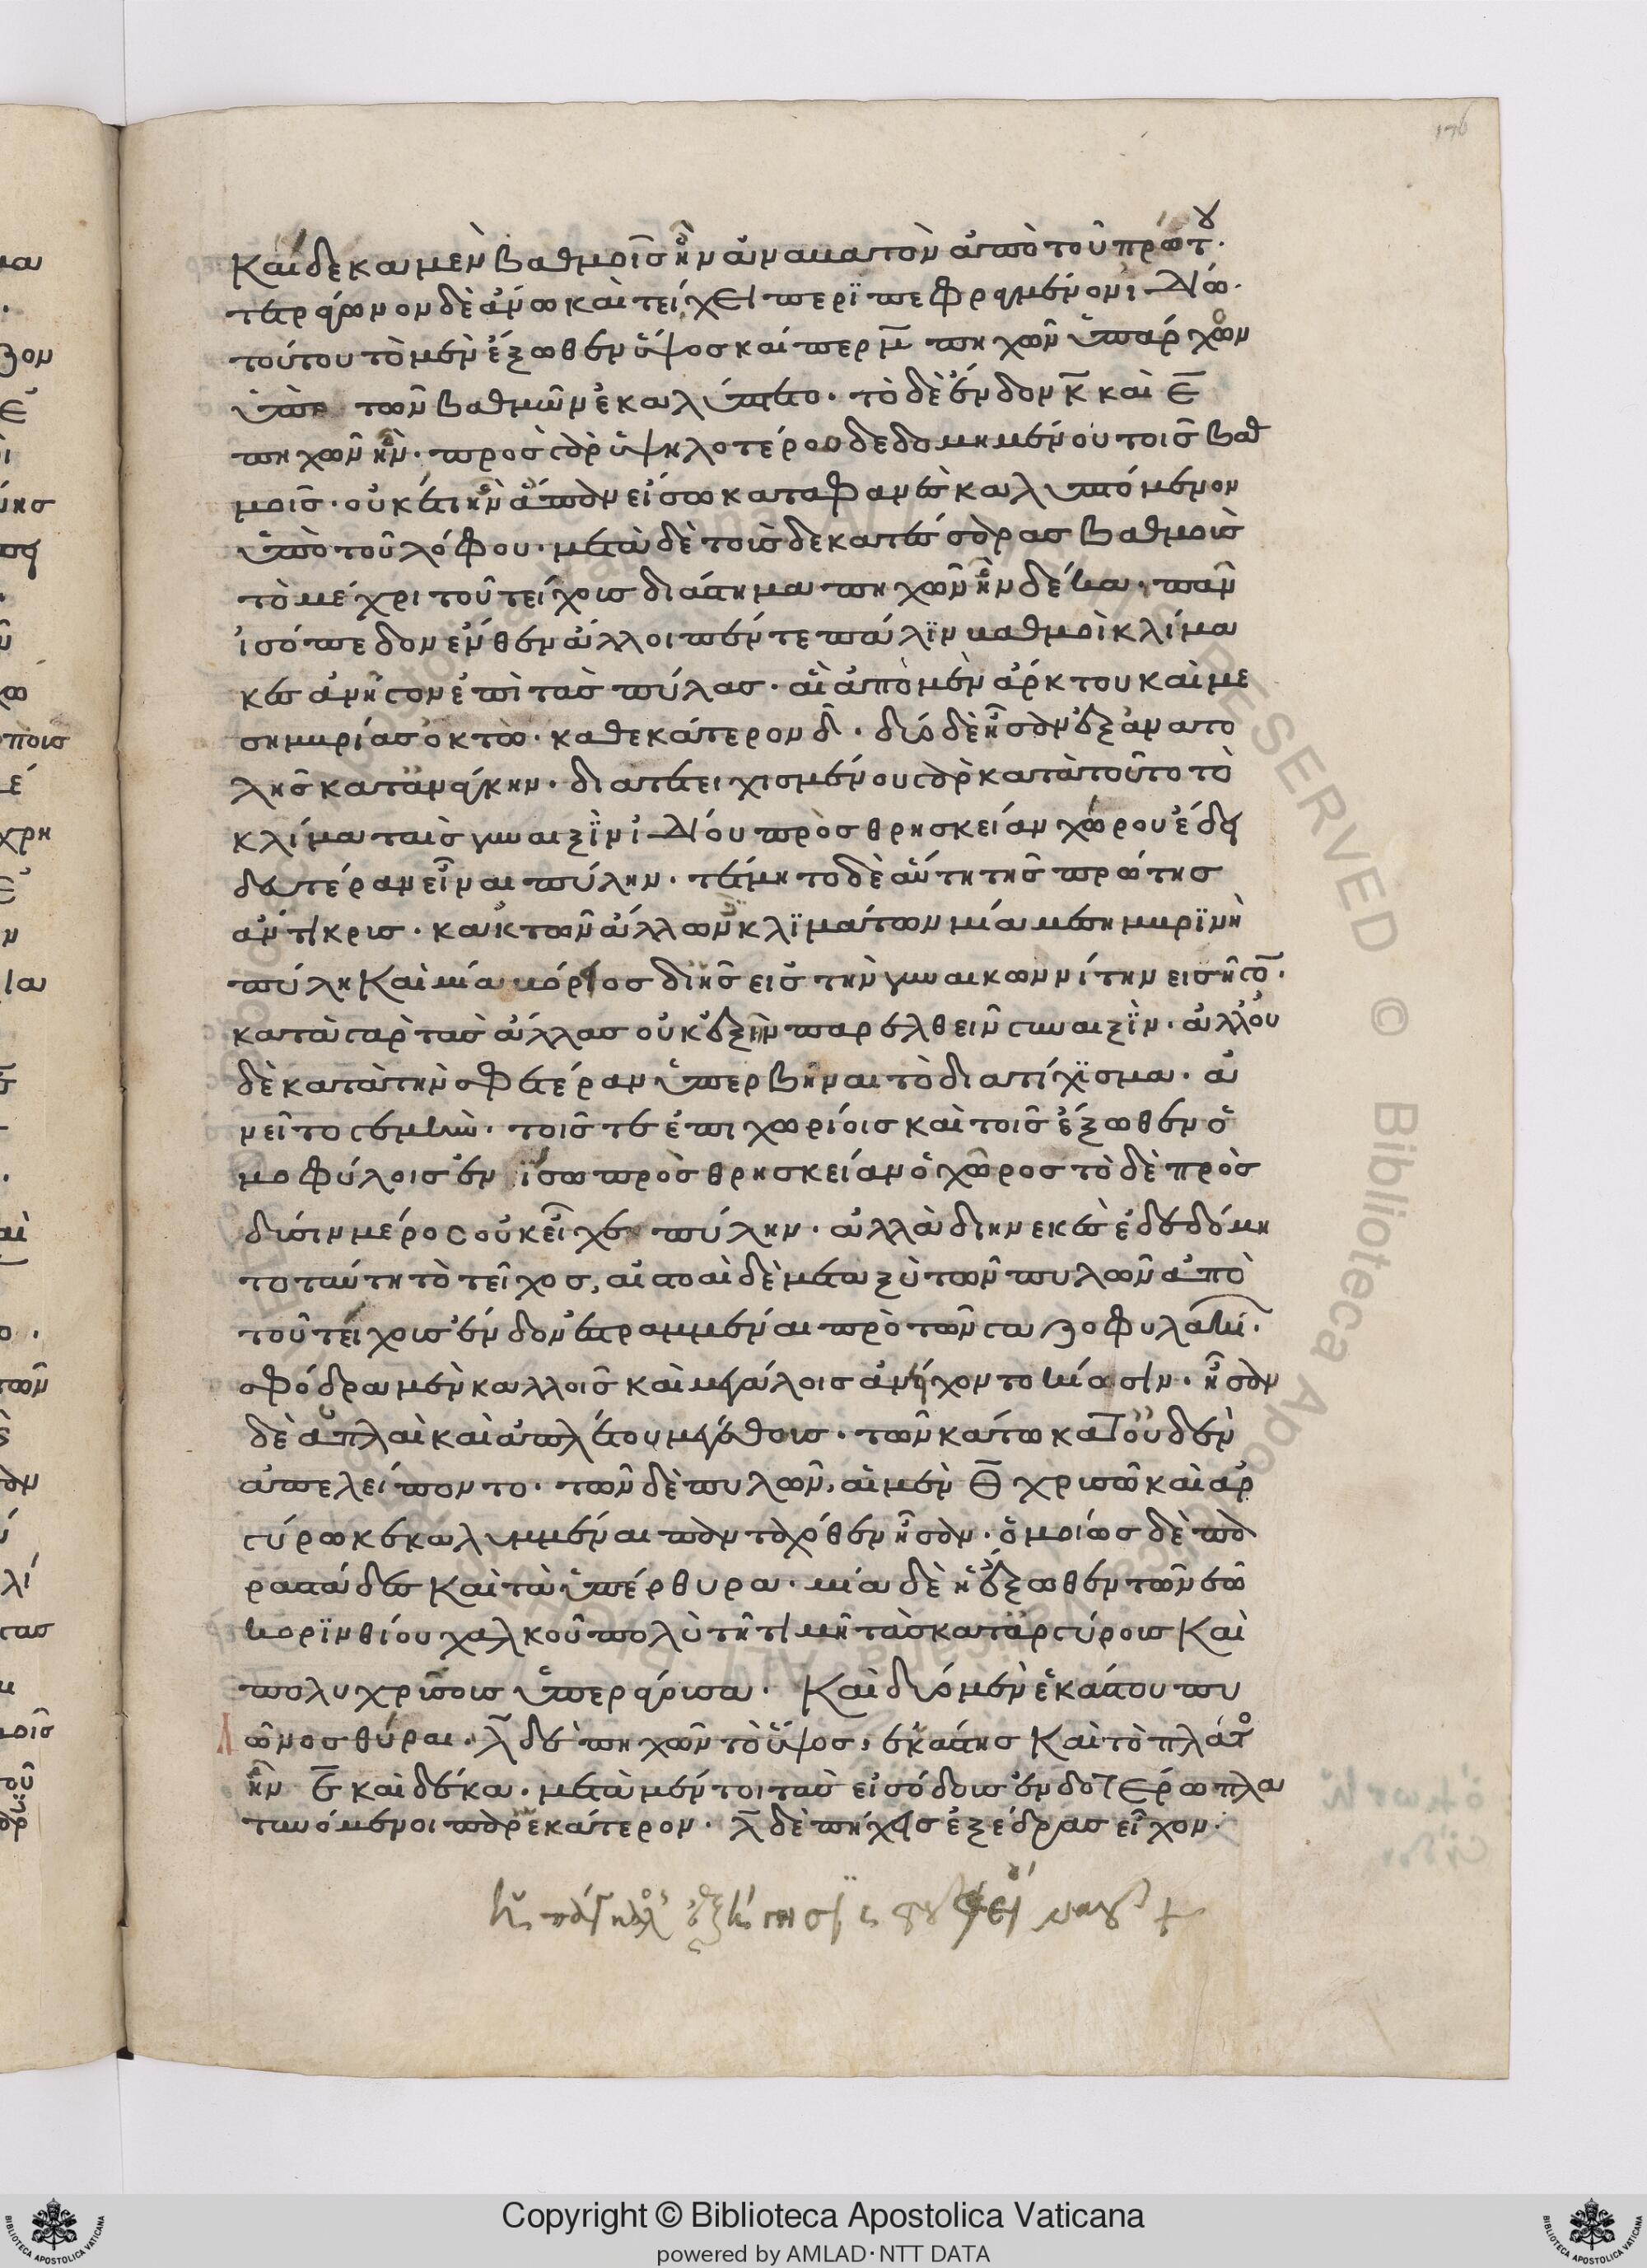 176
Καὶ δεκα μὲν βαθμοῖς ἦν ἀναβατὸν ἀπὸ τοῦ πρώτου·
τετράγωνον δὲ ἄνω καὶ τείχει περϊπεφραγμένον ἰδίω·
τούτου τὸ μὲν ἔξωθεν ὕψος καίπερ μ̅ πηχῶν ὑπάρχον
ὑπὸ τῶν βαθμῶν ἐκαλύπτετο· τὸ δὲ ἔνδον κ̅ καὶ ε̅
πηχῶν ἦν· πρὸς γὰρ ὑψηλοτέρου δεδομημένου τοῖς βαθ
μοῖς· οὐκέτι ἦν ἅπαν εἴσω καταφανὲς καλυπτόμενον
ὑπὸ τοῦ λόφου· μετὰ δὲ τοὺς δεκατέσσαρας βαθμοὺς
τὸ μέχρι τοῦ τείχους διάστημα πηχῶν ἦν δέκα· πᾶν
ἰσόπεδον ἔνθεν ἄλλοι πέντε πάλϊν βαθμοὶ κλίμα
κες ἀνῆγον ἐπὶ τὰς πύλας· αἳ ἀπὸ μὲν ἄρκτου καὶ με
σημβρίας ὀκτώ· καθ εκάτερον δ̅· δύο δὲ ἦσαν ἐξ ἀνατο
λῆς κατ ἀνάγκην· διατετειχισμένου γὰρ κατὰ τοῦτο τὸ
κλίμα ταῖς γυναιξὶν ἰδίου πρὸς θρησκείαν χώρου ἔδει
δευτέραν εἶναι πύλην· τέτμητο δὲ αὕτη τῆς πρώτης
ἄντικρις· κακ τῶν ἄλλων κλϊμάτων μία μεσημβρϊνὴ
πύλη Καὶ μία βόρειος δι ἧς εἰς τὴν γυναικωννίτην εισῆγο̅·
κατὰ γὰρ τὰς ἄλλας οὐκ ἐξῆν παρελθεῖν γυναιξΐν· ἀλλ οὐ
δὲ κατὰ τὴν σφετέραν ὑπερβῆναι τὸ διατίχϊσμα· ἀ
νεῖτο γε μὴν· τοῖς τε ἐπιχωρίοις καὶ τοῖς ἔξωθεν ὁ
μοφύλοις ἐν ἴσω πρὸς θρησκείαν ὁ χῶρος τὸ δὲ πρὸς
δύσιν μέρος οὐκ εἶχε πύλην· ἀλλὰ διηνεκὲς ἐδεδόμη
το ταύτη τὸ τεῖχος, αἱ στοαὶ δὲ μεταξὺ τῶν πυλῶν ἀπὸ
τοῦ τείχους ἔνδον ἐστραμμέναι πρὸ τῶν γαζοφυλακί·
σφόδρα μὲν καλλοῖς καὶ μεγάλοις ἀνείχοντο κίοσιν· ἦσαν
δὲ ἁπλαῖ καὶ ἁπλ ἐτου μεγέθους· τῶν κάτω κατ οὐδὲν
ἀπελείποντο· τῶν δὲ πυλῶν, αἱ μὲν θ̅ χρυσῶ καὶ ἀρ
γύρω κεκαλυμμέναι πανταχόθεν ἦσαν· ὁμοίως δὲ πα
ραστάδες Καὶ τὰ ὑπέρθυρα· μία δὲ ἡ ἔξωθεν τῶν εω
κορϊνθίου χαλκοῦ πολὺ τῆ τιμῆ τὰς καταργύρους Καὶ
πολυχρύσους ὑπεράγουσα· Καὶ δύο μὲν ἑκάστου πυ
ῶνος θύραι· λ̅ δὲ πηχῶν τὸ ὕψος, ἑκάστης Καὶ τὸ πλάτο
ἦν ε̅ καὶ δέκα· μετὰ μέντοι τὰς εἰσόδους ἐνδοτέρω πλα
τυνόμενοι παρ εκάτερον· λ̅ δὲ πήχεις ἐξέδρας εἶχον·